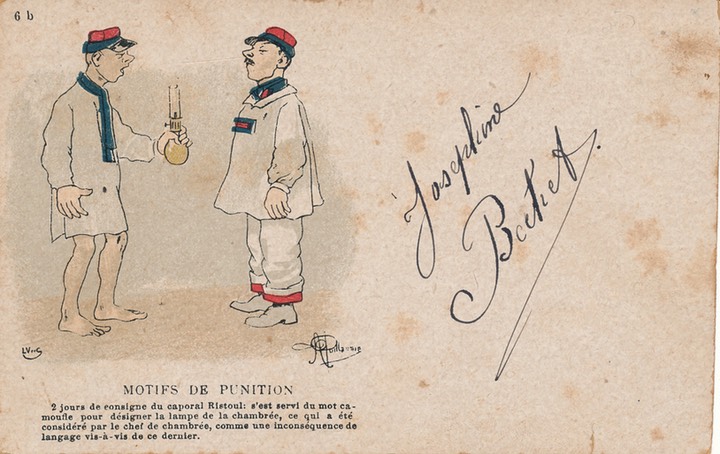 6 b
Josephine
Becket.
MOTIFS DE PUNITION
2 jours de consigne du caporal Ristoul: s'est servi du mot ca-
moufle pour désigner la lampe de la chambrée, ce qui a été
considéré par le chef de chambrée, comme une inconséquence de
langage vis-à-vis de ce dernier.